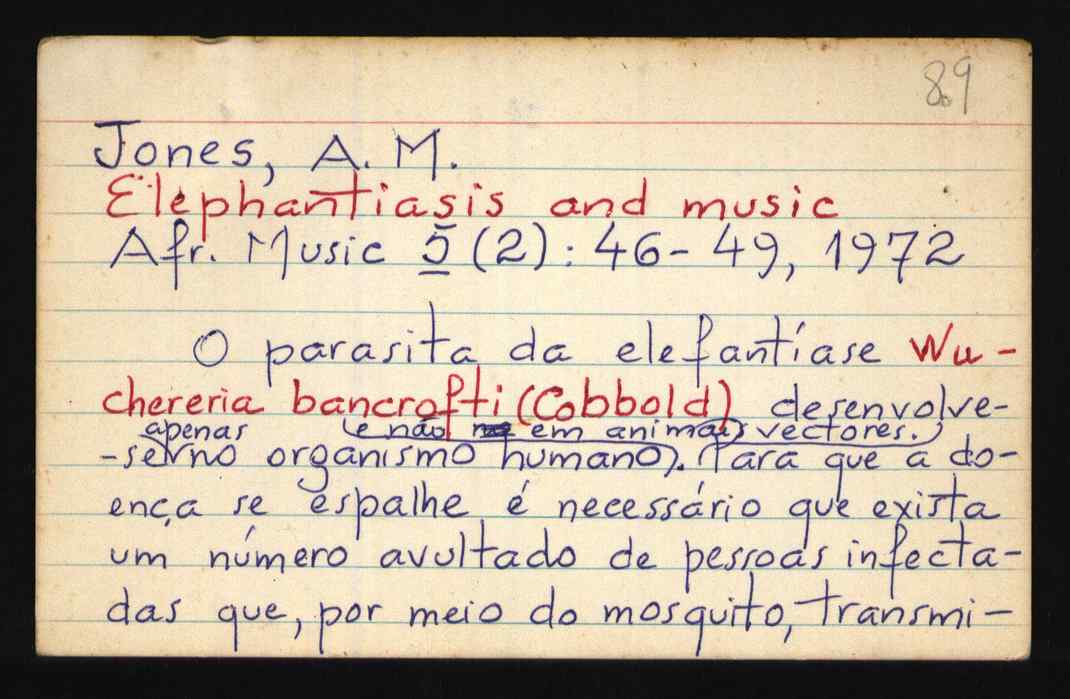 89
Jones, A. M.
Elephantiasis and music
Afr. Music 5 (2): 46-49, 1972
O parasita da elefantíase Wu-
chereria bancrofti (Cobbold) desenvolve-
apenas e não em animais vectores.
-se no organismo humano. Para que a do-
ença se espalhe é necessário que exista
um número avultado de pessoas infecta-
das que, por meio do mosquito, transmi-